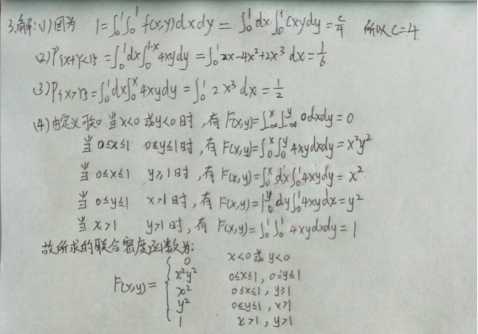 3.解: (1)因为 1=∫₀¹∫₀¹f(x,y)dxdy=∫₀¹dx∫₀¹Cxydy=C/4 所以C=4
(2)P{x+y<1}=∫₀¹dx∫₀¹⁻ˣ4xydy=∫₀¹2x-4x²+2x³dx=1/6
(3)P{x>y}=∫₀¹dx∫₀ˣ4xydy=∫₀¹2x³dx=1/2
(4)由定义 当x<0或y<0时,有F(x,y)=∫₋∞ˣ∫₋∞ʸ0dxdy=0
当0≤x≤1 0≤y≤1时,有F(x,y)=∫₀ˣ∫₀ʸ4xydxdy=x²y²
当0≤x≤1 y≥1时,有F(x,y)=∫₀ˣdx∫₀¹4xydy=x²
当0≤y≤1 x>1时,有F(x,y)=∫₀ʸdy∫₀¹4xydx=y²
当x>1 y>1时,有F(x,y)=∫₀¹∫₀¹4xydxdy=1
故所求的联合密度函数为:
0 x<0或y<0
x²y² 0≤x≤1,0≤y≤1
F(x,y)={ x² 0≤x≤1,y≥1
y² 0≤y≤1,x>1
1 x>1,y>1